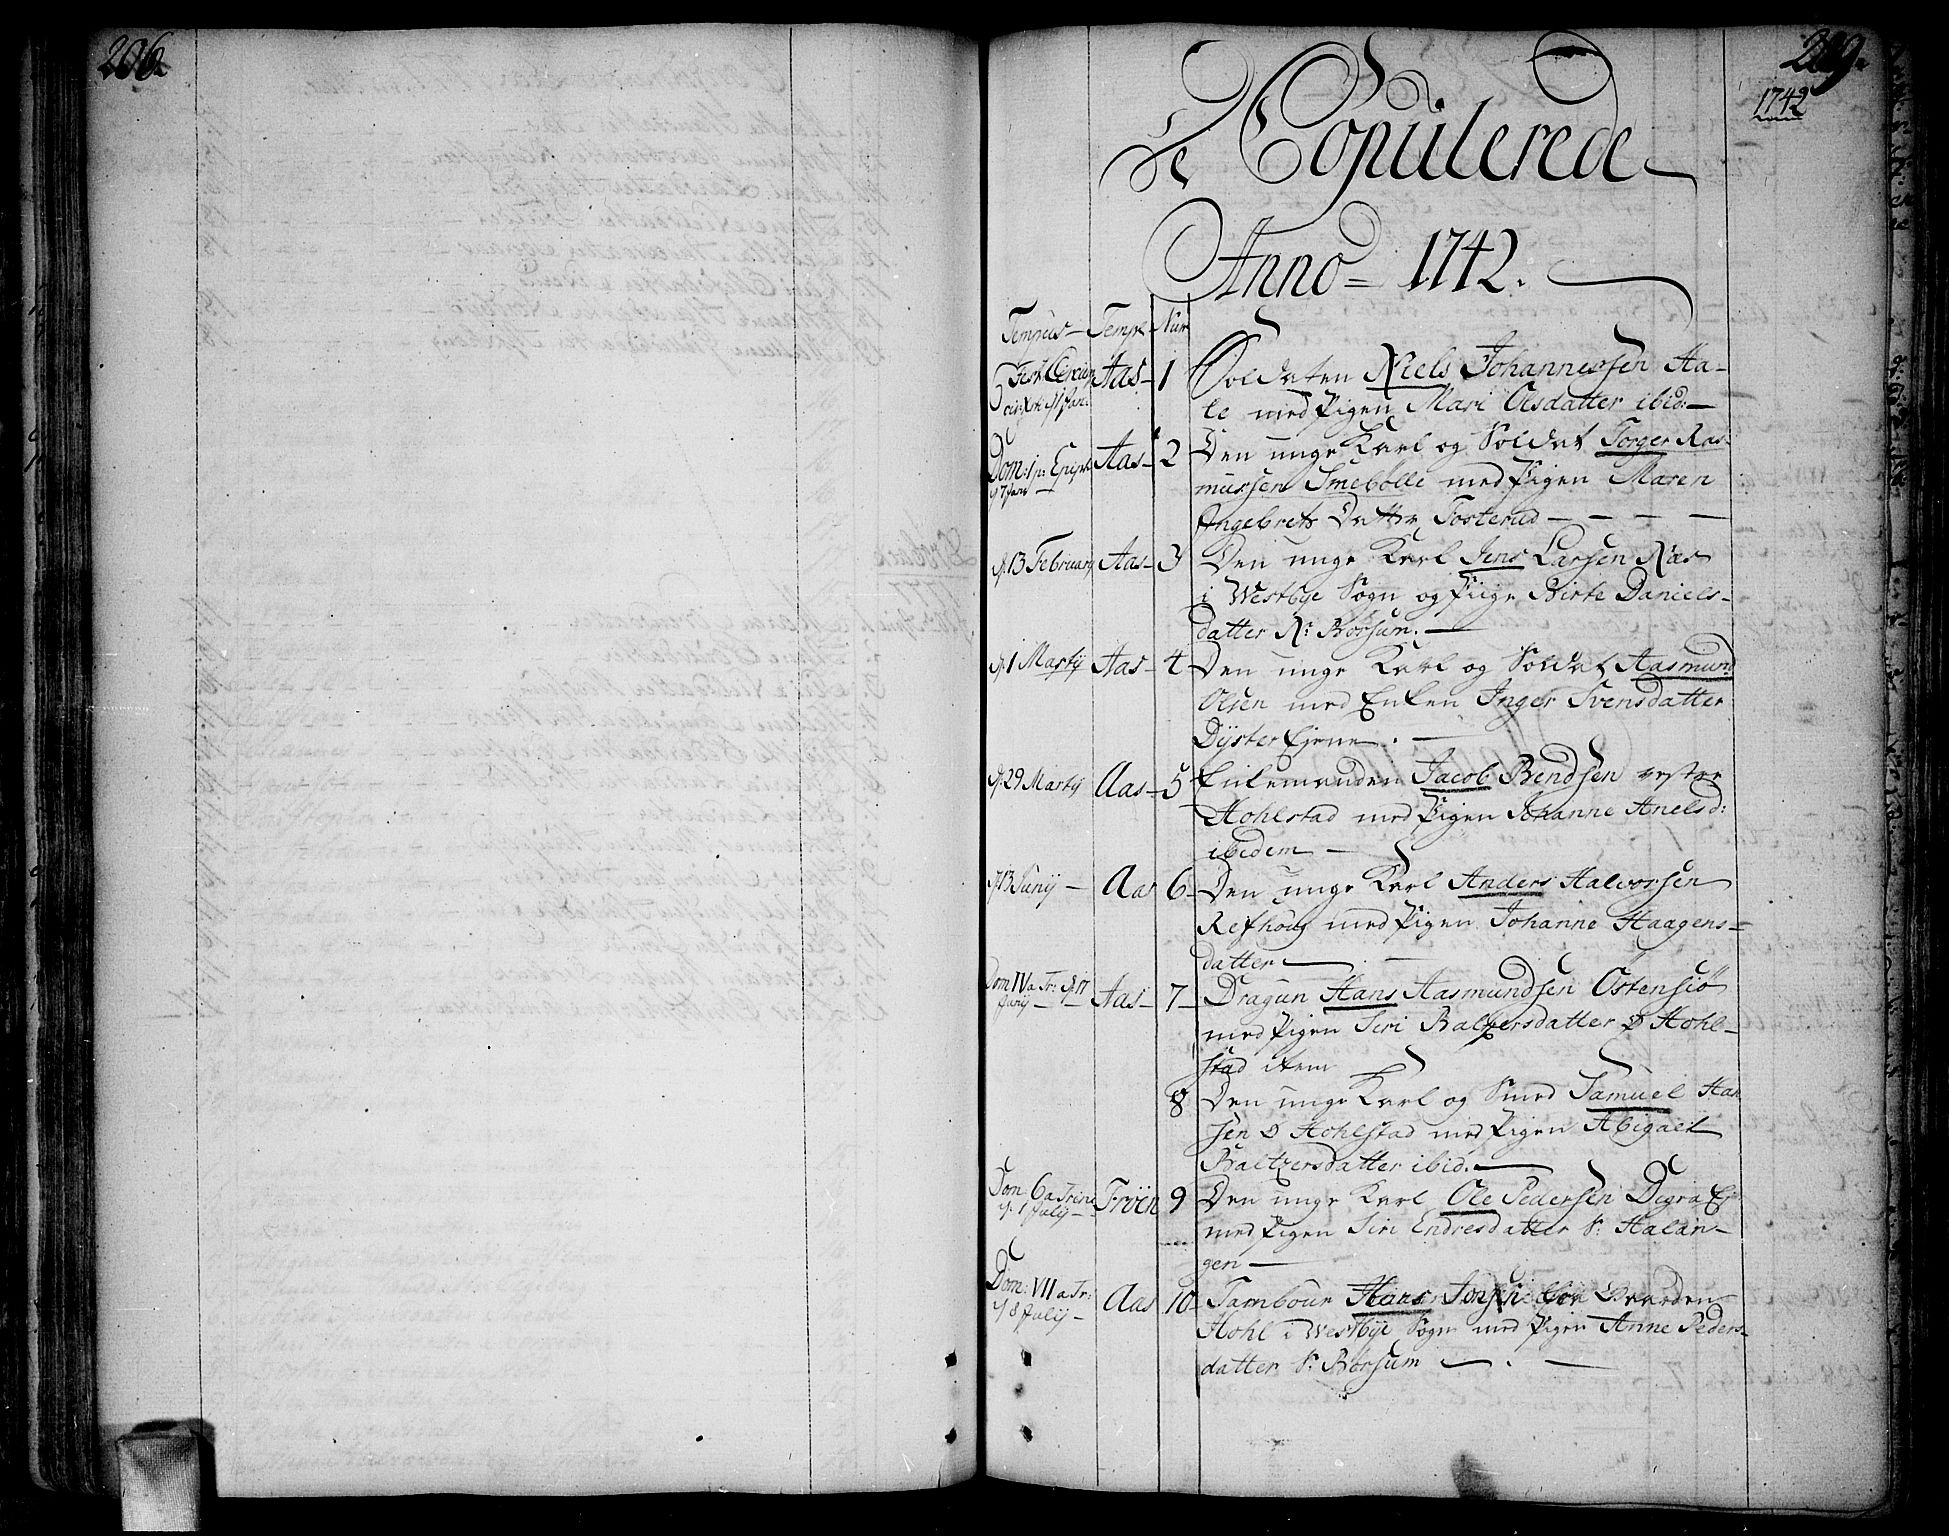 206.
209.
1742
De Copulerede
Anno = 1742.
Tempus — Templ Num
Fest: Circumcis: Xsti d 1 Jan: Aas — 1 Soldaten Niels Johannessen Aa-
le med Pigen Mari Olsdatter ibid: —
Dom: 1 p: Epiph d 7 Jan Aas — 2 Den unge Karl og Soldat Torger Ras-
mussen Smebølle med Pigen Maren
Ingebrets Datter Fosterud — — — —
d. 13 February Aas — 3 Den unge Karl Jens Larsen Næs
i Westbye Sogn og Piige Birte Daniels-
datter N: Borsum. —
d. 1 Martij Aas — 4 Den unge Karl og Soldat Aasmund
Olsen med Enken Inger Svensdatter
Dyster Ejene . —
d. 29 Martij Aas — 5 Enkemanden Jacob Bendsen vestre
Hohlstad med Pigen Johanne Anelsd:
ibidem —
d. 13 Junij — Aas 6 — Den unge Karl Anders Halvorsen
Refhoug med Pigen Johanne Haagens=
datter — . —
Dom IV a Tr: d. 17 Junij — Aas — 7 — Dragun Hans Aasmundsen Östensiö
med Pigen Siri Baltzersdatter Ø Hohl-
stad item
8 Den unge Karl og Smed Samuel Han
sen Ø Hohlstad med Pigen Abigael
Baltzersdatter ibid. —
Dom 6 a Trin: d. 1 Julij — Fröen 9 Den unge Karl Ole Pedersen Digra Ej
med Pigen Siri Endresdatter S: Halan-
gen —
Dom: VII a Tr: d 8 Julij — Aas 10 — Tambour Hans
Hohl i Westbye Sogn med Pigen Anne Peders-
datter S: Borsum — . —